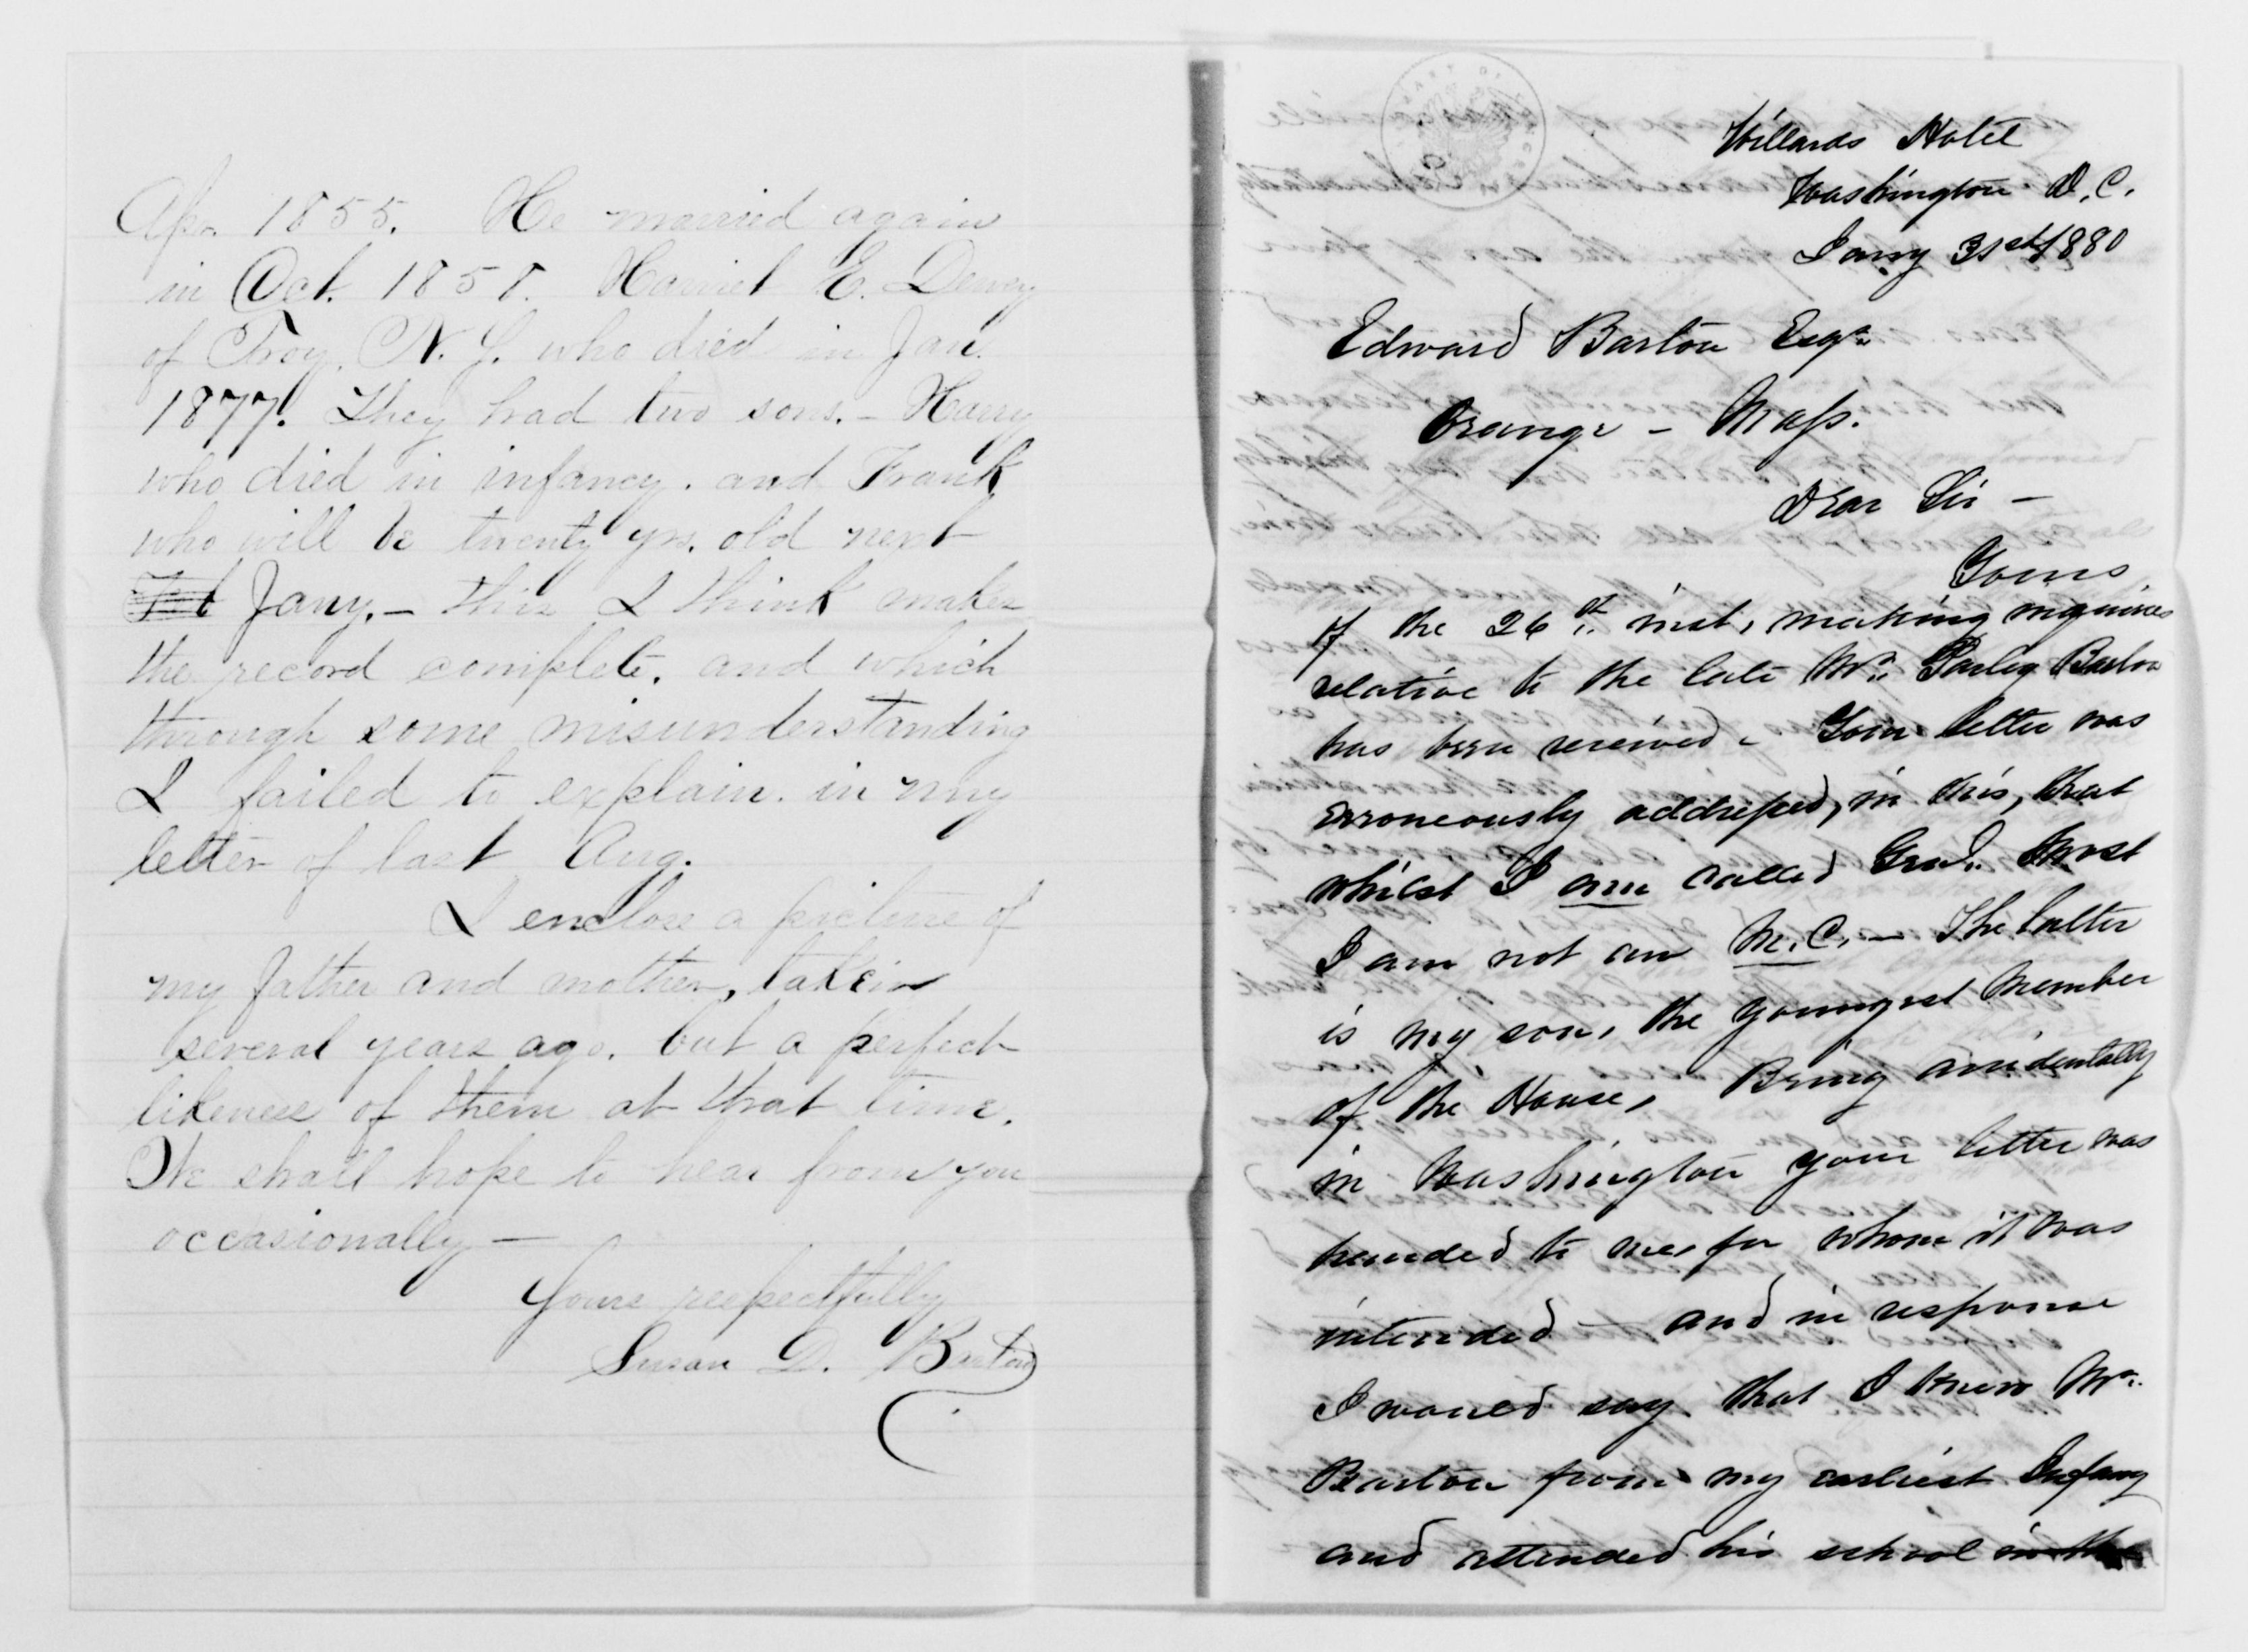 Apr. 1855. He married again
in Oct. 1858. Harriet E. Dewey
of Troy, N.Y. who died in Jan.
1877. They had two sons. - Harry
who died in infancy. and Frank
who will be twenty yrs. old next
Feb Jany. - this I think makes
the record complete. and which
through some misunderstanding
I failed to explain. in my
letter of last Aug.
I enclose a picture of
my father and mother, taken
several years ago. but a perfect
likeness of them at that time.
We shall hope to hear from you
occasionally —
Yours respectfully
Susan D. Barton
Willards Hotel
Washington D.C.
Jany 31st 1880
Edward Barton Esqr.
Orange - Mass.
Dear Sir -
Yours
of the 26th inst, making inquiries
relative to the late Mr. Parley Barton
has been received - Your letter was
erroneously addressed, in this, that
whilst I am called Genl.
I am not an M.C. - The latter
is my son, the youngest member
of the House, Being accidentally
in Washington your letter was
handed to me, for whom it was
intended — and in response
I would say that I knew Mr.
Barton from my earliest Infancy
and attended his school in the